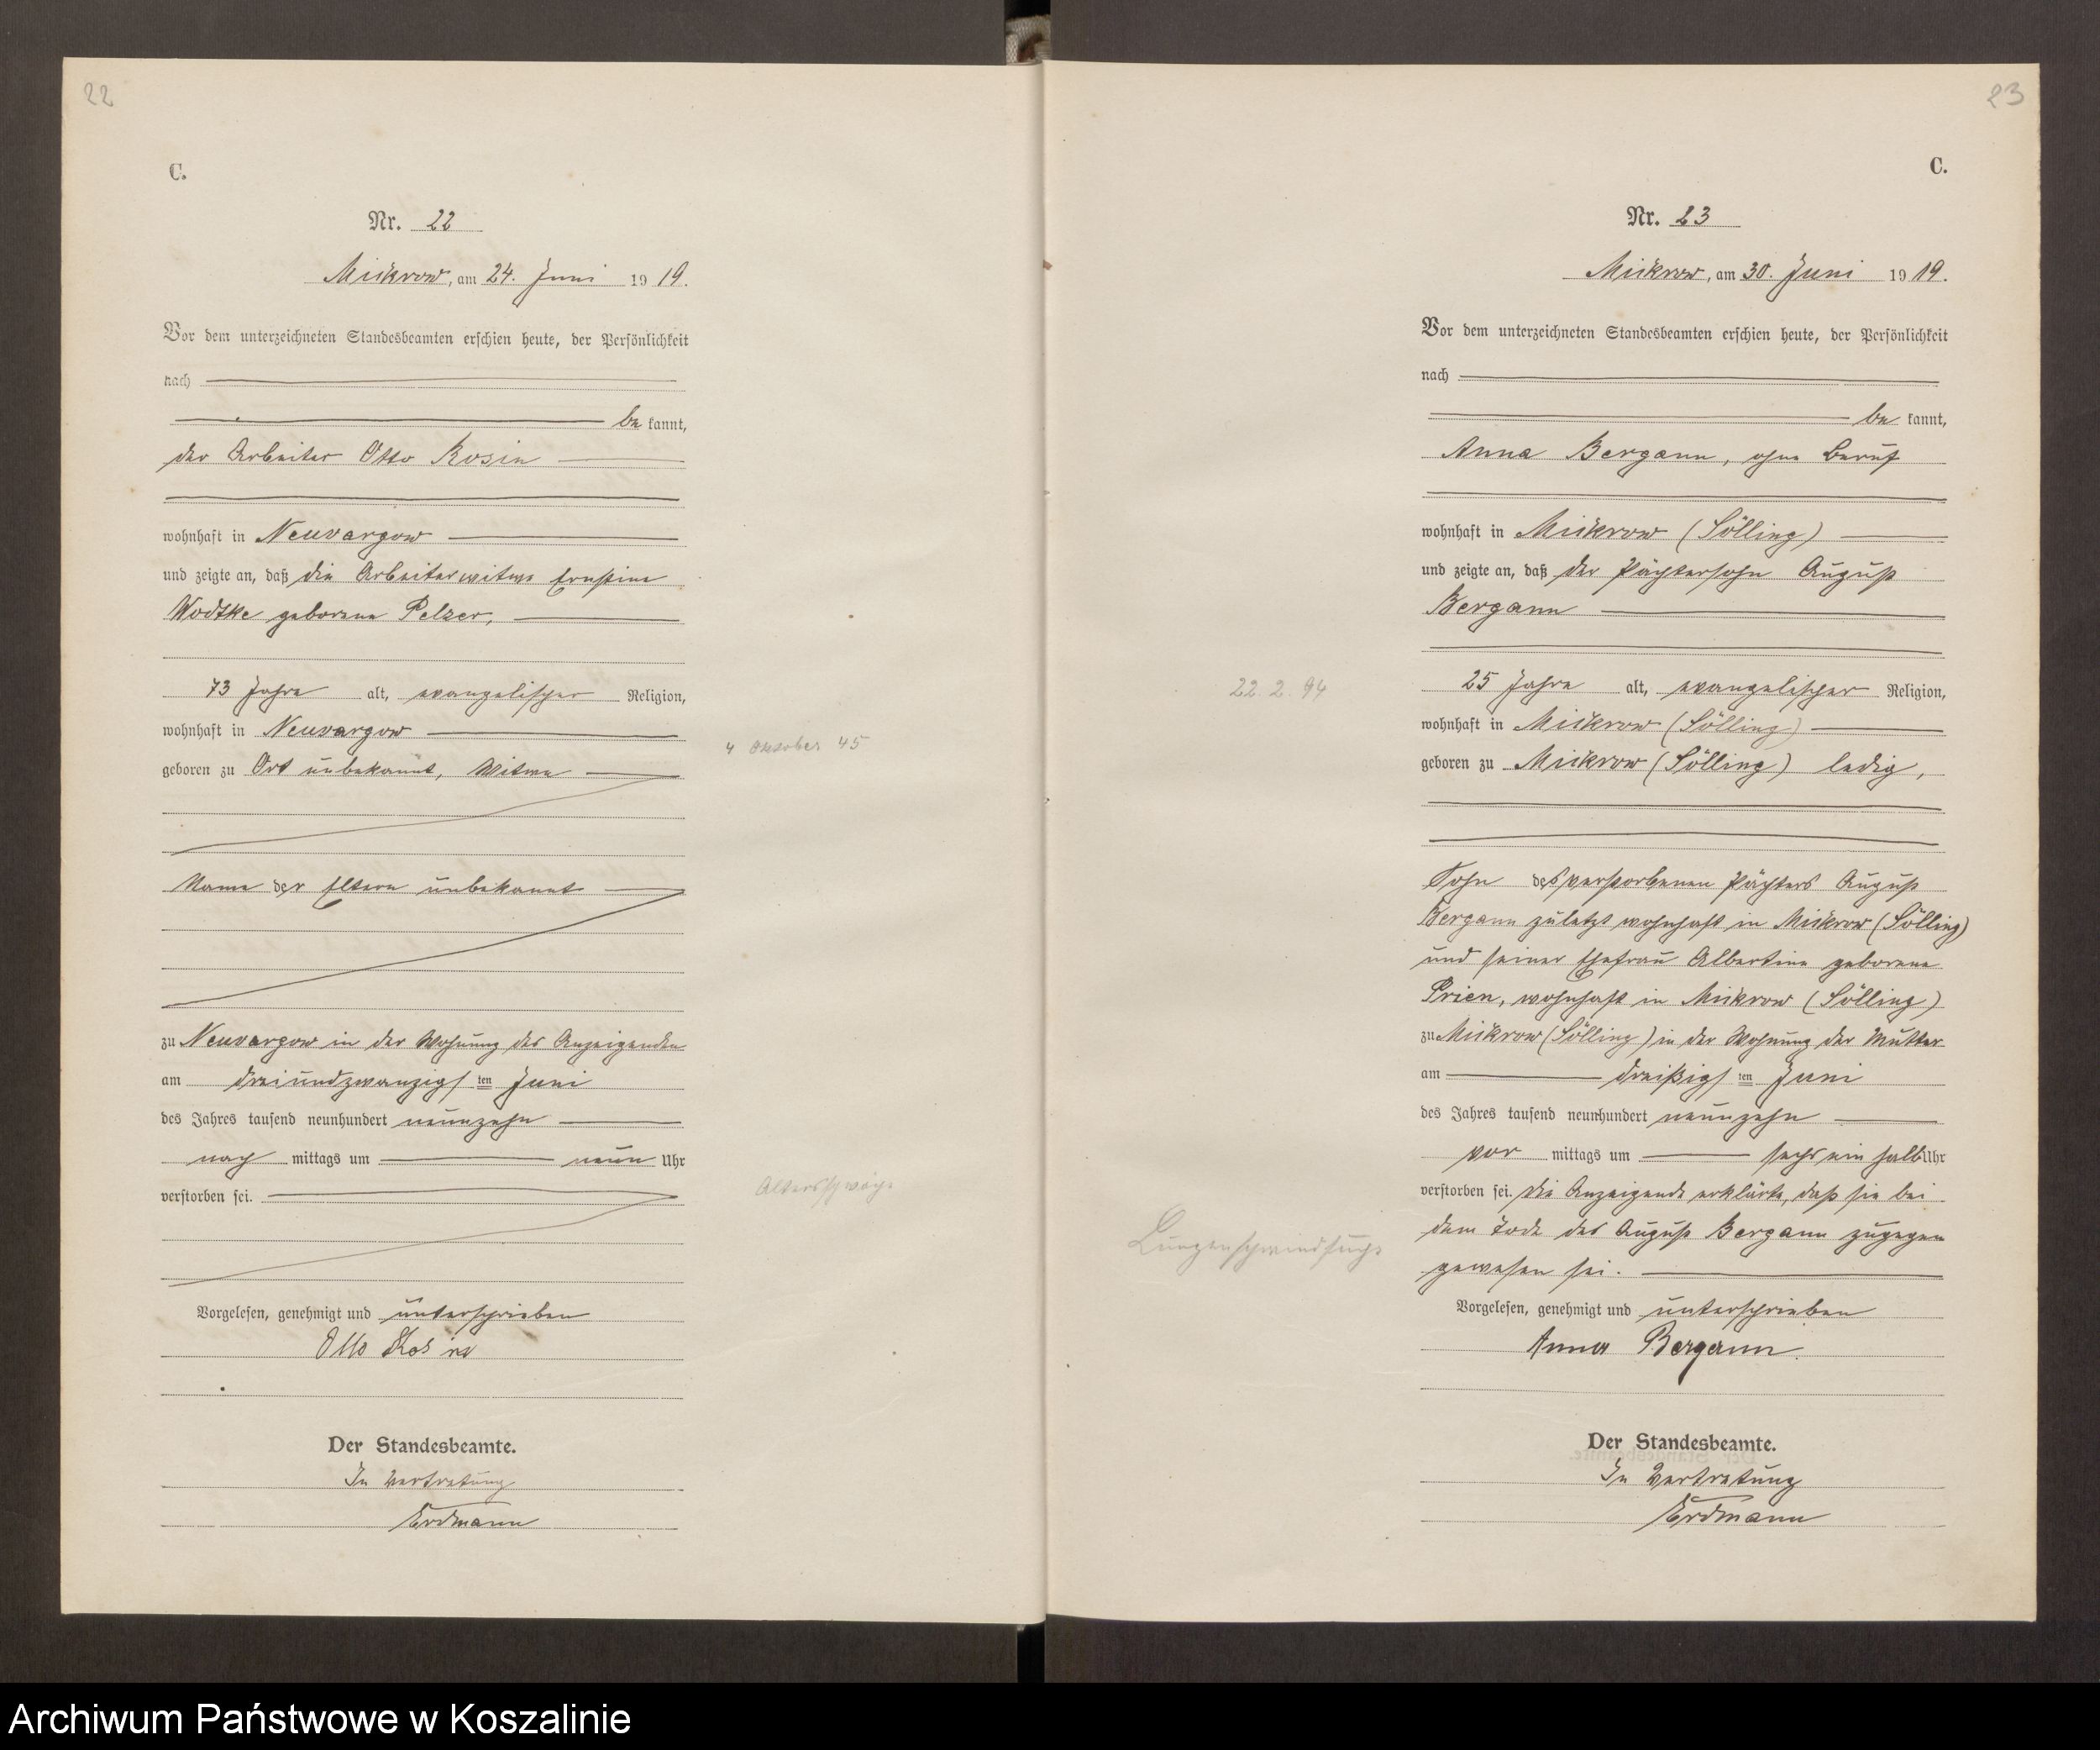 22
C.
Nr. 22
Mickrow, am 24. Juni 1919.
Vor dem unterzeichneten Standesbeamten erschien heute, der Persönlichkeit
nach
be kannt,
der Arbeiter Otto Rosin
wohnhaft in Neuvargow
und zeigte an, daß die Arbeiterwitwe Ernstine
Wodtke geborene Pelzer,
73 Jahre alt, evangelischer Religion,
wohnhaft in Neuvargow
4 Oktober 45
geboren zu Ort unbekannt, Witwe
Name der Eltern unbekannt
zu Neuvargow in der Wohnung des Anzeigenden
am dreiundzwanzigsten Juni
des Jahres tausend neunhundert neunzehn
nach mittags um neun Uhr
Altersschwäche
verstorben sei.
Vorgelesen, genehmigt und unterschrieben
Otto Rosin
Der Standesbeamte.
In Vertretung
Erdmann
23
C.
Nr. 23
Mickrow, am 30. Juni 1919.
Vor dem unterzeichneten Standesbeamten erschien heute, der Persönlichkeit
nach
be kannt,
Anna Bergann, ohne Beruf
wohnhaft in Mickrow (Sölling)
und zeigte an, daß der Pächtersohn August
Bergann
22. 2. 94
25 Jahre alt, evangelischer Religion,
wohnhaft in Mickrow (Sölling)
geboren zu Mickrow (Sölling) ledig,
Sohn des verstorbenen Pächters August
Bergann zuletzt wohnhaft in Mickrow (Sölling)
und seiner Ehefrau Albertine geborene
Prien, wohnhaft in Mickrow (Sölling)
zu Mickrow (Sölling) in der Wohnung der Mutter
am dreißigsten Juni
des Jahres tausend neunhundert neunzehn
vor mittags um sechs ein halb Uhr
verstorben sei. Die Anzeigende erklärte, daß sie bei
dem Tode des August Bergann zugegen
Lungenschwindsucht
gewesen sei.
Vorgelesen, genehmigt und unterschrieben
Anna Bergann.
Der Standesbeamte.
In Vertretung
Erdmann
Archiwum Państwowe w Koszalinie